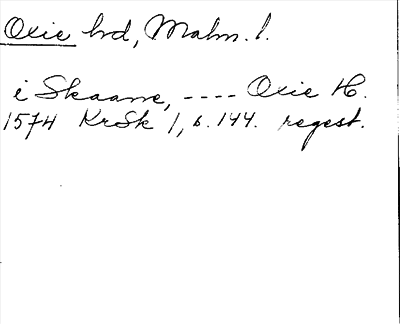 Oxie hd, Malm. l.
i Skaane, ---- Oxie H.
1574 KrSk 1, s. 144. regest.